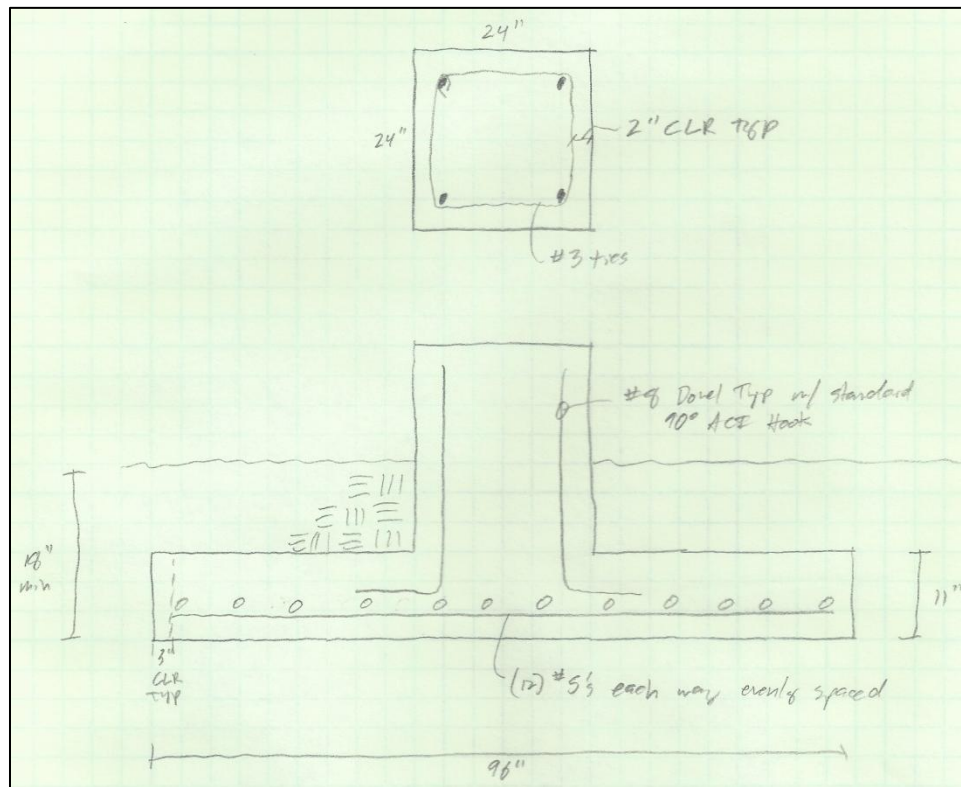 24"
24"
2" CLR TYP
#3 ties
#8 Dowel Typ w/ standard
90° ACI Hook
18"
min
11"
3"
CLR
TYP
(12) #5's each way evenly spaced
96"